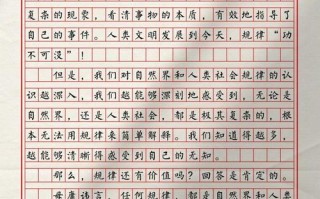 复杂的现象，看清事物的本质，有效地指导了
自己的事件。人类文明发展到今天，规律“功
不可没”！
但是，我们对自然界和人类社会规律的认
识越深入，我们越能够深刻地感受到，无论是
自然界，还是人类社会，都是极其复杂的，根
本无法用规律来简单解释。我们知道得越多，
越能够清晰得感受到自己的无知。
那么，规律还有价值吗？回答是肯定的。
毋庸讳言，任何规律，都是自然界和人类